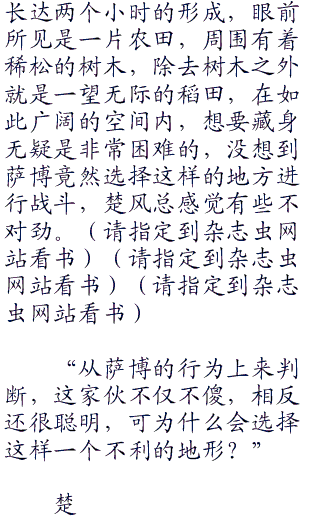 长达两个小时的形成，眼前
所见是一片农田，周围有着
稀松的树木，除去树木之外
就是一望无际的稻田，在如
此广阔的空间内，想要藏身
无疑是非常困难的，没想到
萨博竟然选择这样的地方进
行战斗，楚风总感觉有些不
对劲。（请指定到杂志虫网
站看书）（请指定到杂志虫
网站看书）（请指定到杂志
虫网站看书）
“从萨博的行为上来判
断，这家伙不仅不傻，相反
还很聪明，可为什么会选择
这样一个不利的地形？”
楚